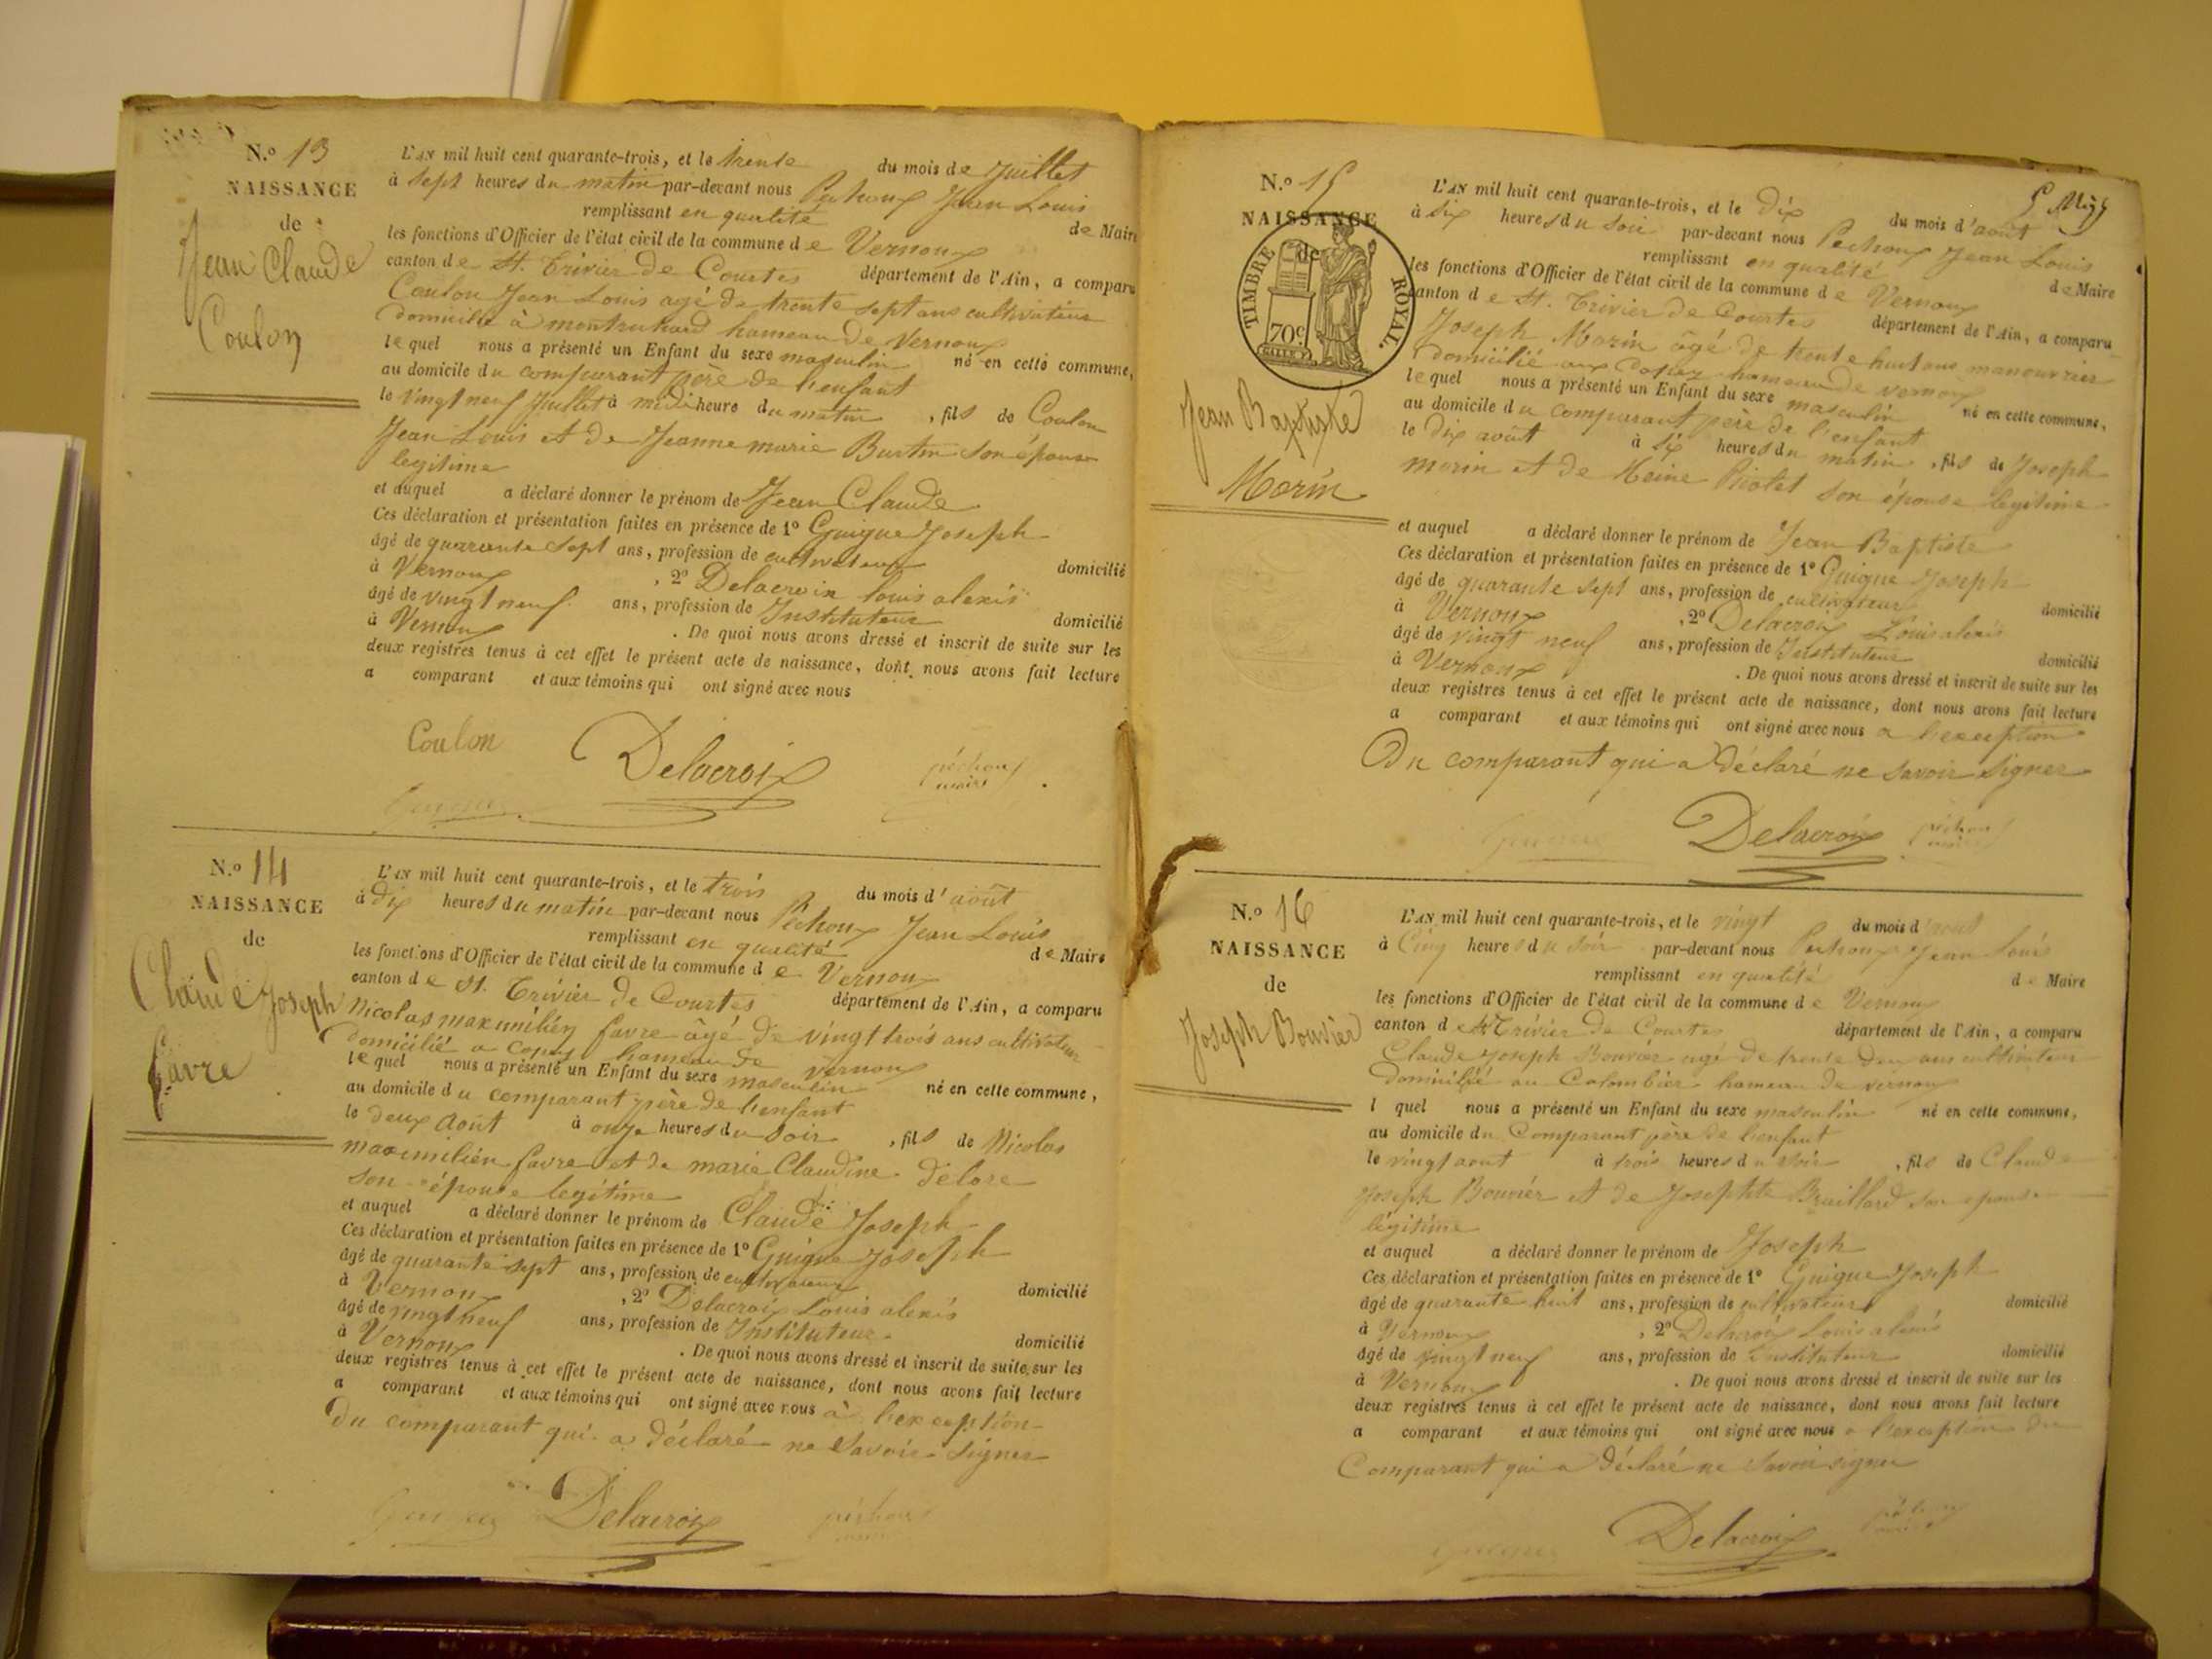 N.º 13
NAISSANCE
de
Jean Claude
Coulon
L'AN mil huit cent quarante-trois, et le trente du mois de Juillet
à sept heures du matin par-devant nous Pechoux Jean Louis
remplissant en qualité de Maire
les fonctions d'Officier de l'état civil de la commune de Vernoux
canton de St. Trivier de Courtes département de l'Ain, a comparu
Coulon Jean Louis agé de trente sept ans cultivateur
domicilié à hameau de Vernoux
lequel nous a présenté un Enfant du sexe masculin né en cette commune,
au domicile du comparant père de l'enfant
le vingt neuf Juillet à midi heure du matin , fils de Coulon
Jean Louis et de Jeanne marie Burtin son épouse
legitime
et auquel a déclaré donner le prénom de Jean Claude
Ces déclaration et présentation faites en présence de 1º Guigue Joseph
âgé de quarante sept ans, profession de cultivateur domicilié
à Vernoux , 2º Delacroix louis alexis
âgé de vingt neuf ans, profession de Instituteur domicilié
à Vernoux . De quoi nous avons dressé et inscrit de suite sur les
deux registres tenus à cet effet le présent acte de naissance, dont nous avons fait lecture
a comparant et aux témoins qui ont signé avec nous
Coulon Delacroix péchoux
maire
Guigue
N.º 14
NAISSANCE
de
Claude Joseph
favre
L'AN mil huit cent quarante-trois, et le trois du mois d'août
à dix heures du matin par-devant nous Pechoux Jean Louis
remplissant en qualité de Maire
les fonctions d'Officier de l'état civil de la commune de Vernoux
canton de St. Trivier de Courtes département de l'Ain, a comparu
Nicolas maximilien favre âgé de vingt trois ans cultivateur
domicilié a hameau de Vernoux
lequel nous a présenté un Enfant du sexe masculin né en cette commune,
au domicile du comparant père de l'enfant
le deux août à onze heures du soir , fils de Nicolas
maximilien favre et de marie Claudine délore
son épouse legitime
et auquel a déclaré donner le prénom de Claude Joseph
Ces déclaration et présentation faites en présence de 1º Guigue Joseph
âgé de quarante sept ans, profession de cultivateur domicilié
à Vernoux , 2º Delacroix Louis alexis
âgé de vingt neuf ans, profession de Instituteur domicilié
à Vernoux . De quoi nous avons dressé et inscrit de suite sur les
deux registres tenus à cet effet le présent acte de naissance, dont nous avons fait lecture
a comparant et aux témoins qui ont signé avec nous à l'exception
du comparant qui a déclaré ne savoir signer
Guigue Delacroix péchoux
N.º 15
NAISSANCE
de
TIMBRE ROYAL.
70 c
Jean Baptiste
Morin
L'AN mil huit cent quarante-trois, et le dix du mois d'août
à six heures du soir par-devant nous Pechoux Jean Louis
remplissant en qualité de Maire
les fonctions d'Officier de l'état civil de la commune de Vernoux
canton de St. Trivier de Courtes département de l'Ain, a comparu
Joseph Morin âgé de trente huit ans manouvrier
domicilié aux hameau de vernoux
lequel nous a présenté un Enfant du sexe masculin né en cette commune,
au domicile du comparant père de l'enfant
le dix août à six heures du matin , fils de Joseph
morin et de Reine son épouse legitime
et auquel a déclaré donner le prénom de Jean Baptiste
Ces déclaration et présentation faites en présence de 1º Guigue Joseph
âgé de quarante sept ans, profession de cultivateur domicilié
à Vernoux , 2º Delacroix Louis alexis
âgé de vingt neuf ans, profession de Instituteur domicilié
à Vernoux . De quoi nous avons dressé et inscrit de suite sur les
deux registres tenus à cet effet le présent acte de naissance, dont nous avons fait lecture
a comparant et aux témoins qui ont signé avec nous a l'exception
Du comparant qui a déclaré ne savoir signer
Guigue Delacroix péchoux
maire
N.º 16
NAISSANCE
de
Joseph Bouvier
L'AN mil huit cent quarante-trois, et le vingt du mois d'aout
à Cinq heures du soir par-devant nous Pechoux Jean Louis
remplissant en qualité de Maire
les fonctions d'Officier de l'état civil de la commune de Vernoux
canton de St Trivier de Courtes département de l'Ain, a comparu
Claude Joseph Bouvier agé de trente deux ans cultivateur
domicilié au Colombier hameau de vernoux
l quel nous a présenté un Enfant du sexe masculin né en cette commune,
au domicile du Comparant père de l'enfant
le vingt aout à trois heures du soir , fils de Claude
Joseph Bouvier et de Josephte Braillard son epouse
légitime
et auquel a déclaré donner le prénom de Joseph
Ces déclaration et présentation faites en présence de 1º Guigue Joseph
âgé de quarante huit ans, profession de cultivateur domicilié
à Vernoux , 2º Delacroix Louis alexis
âgé de vingt neuf ans, profession de Instituteur domicilié
à Vernoux . De quoi nous avons dressé et inscrit de suite sur les
deux registres tenus à cet effet le présent acte de naissance, dont nous avons fait lecture
a comparant et aux témoins qui ont signé avec nous a l'exception du
Comparant qui a déclaré ne savoir signer
Guigue Delacroix